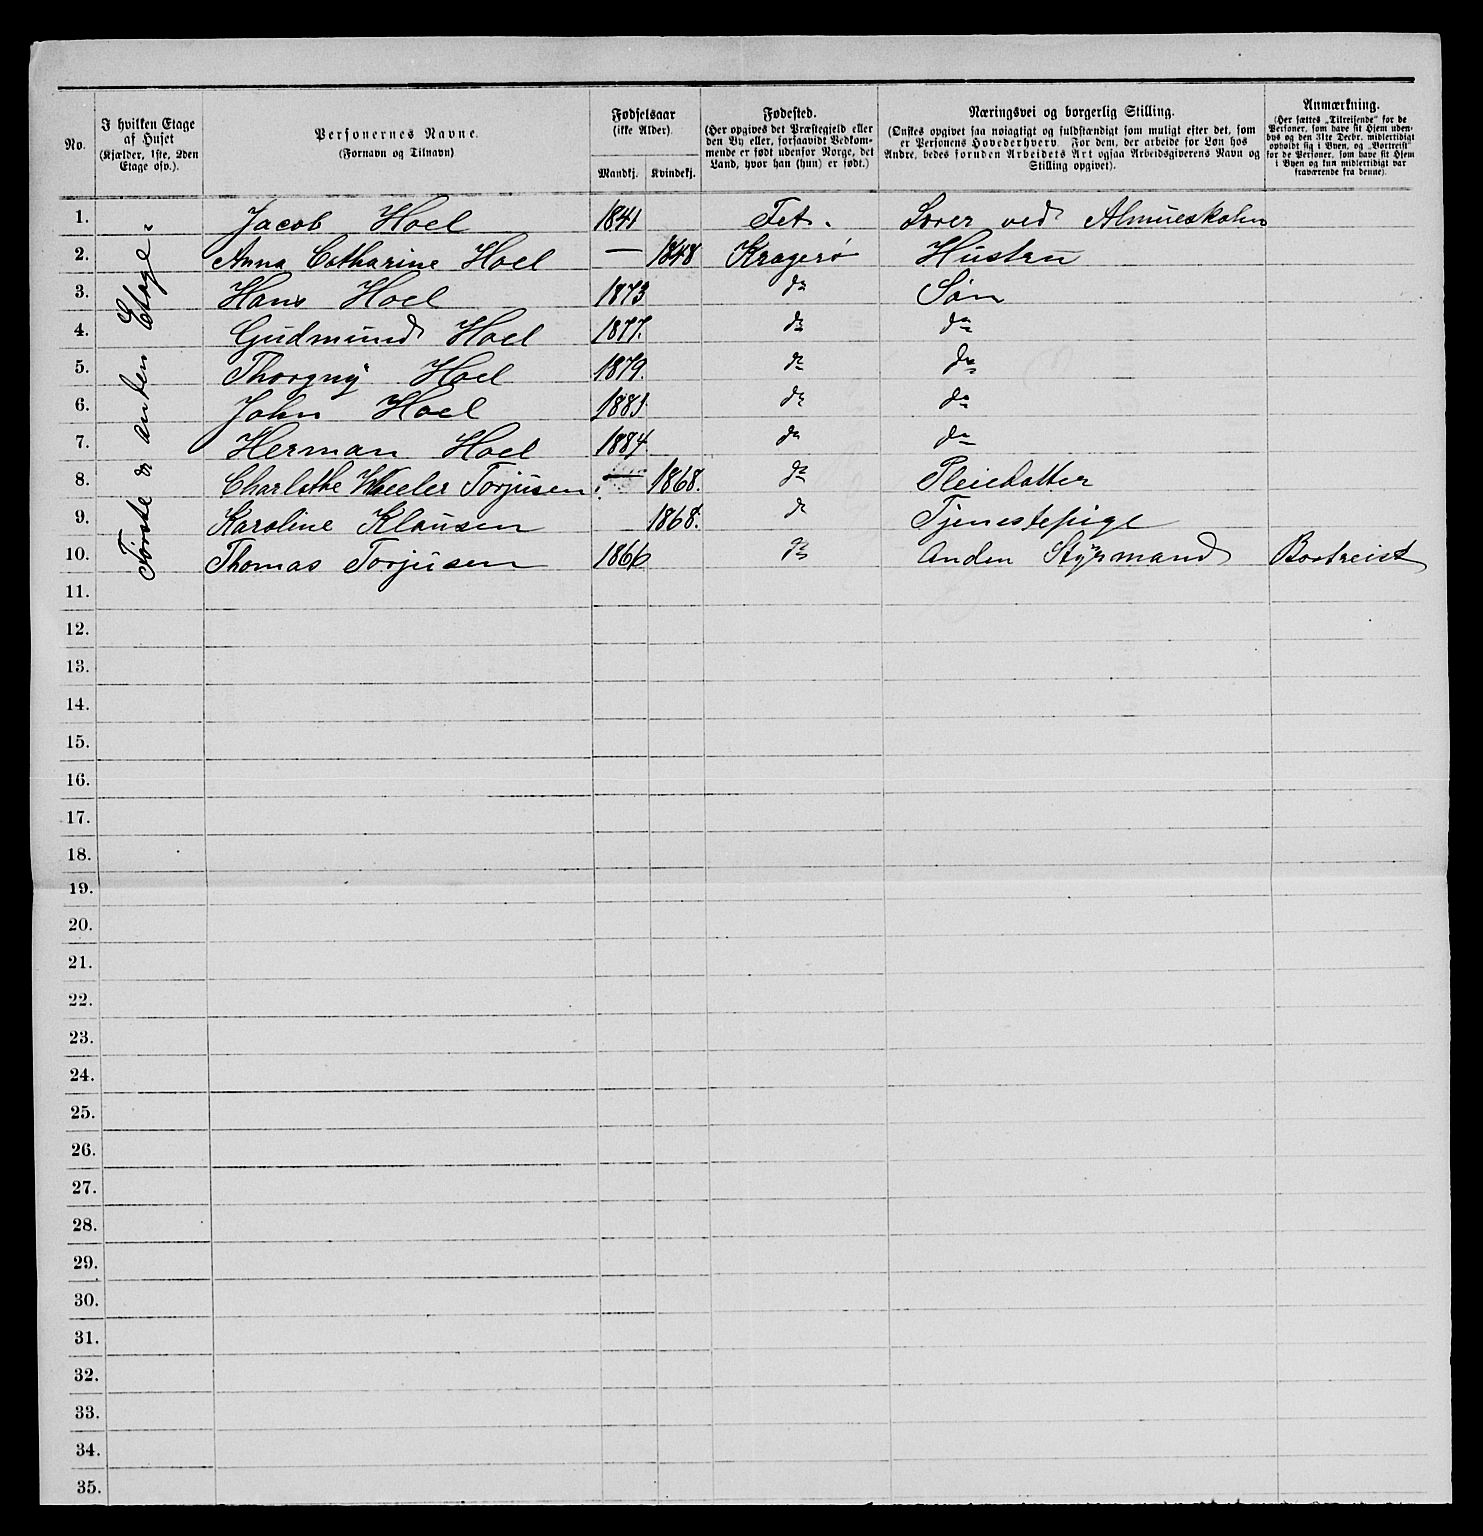 No.
I hvilken Etage af Huset (Kjælder, 1ste, 2den Etage osv.).
Personernes Navne. (Fornavn og Tilnavn)
Fødselsaar (ikke Alder).
Mandkj. Kvindekj.
Fødested. (Her opgives det Præstegjeld eller den By eller, forsaavidt Vedkommende er født udenfor Norge, det Land, hvor han (hun) er født.)
Næringsvei og borgerlig Stilling. (Ønskes opgivet saa nøiagtigt og fuldstændigt som muligt efter det, som er Personens Hovederhverv. For dem, der arbeide for Løn hos Andre, bedes foruden Arbeidets Art ogsaa Arbeidsgiverens Navn og Stilling opgivet).
Anmærkning. (Her sættes „Tilreisende“ for de Personer, som have sit Hjem udenbys og den 31te Decbr. midlertidigt opholdt sig i Byen, og „Bortreist“ for de Personer, som have sit Hjem i Byen og kun midlertidigt var fraværende fra denne).
Første & anden Etage.
1. Jacob Hoel 1841 Fet. Lærer ved
2. Anna Catharine Hoel — 1848 Kragerø Hustru
3. Hans Hoel 1873 do Søn
4. Gudmund Hoel 1877. do do
5. Thorgny Hoel 1879. do do
6. John Hoel do do
7. Herman Hoel 1884. do do
8. Charlothe Torjusen — 1868. do Pleiedatter
9. Karoline Klausen 1868. do Tjenestepige
10. Thomas Torjusen 1866 do Anden Styrmand Bortreist
11.
12.
13.
14.
15.
16.
17.
18.
19.
20.
21.
22.
23.
24.
25.
26.
27.
28.
29.
30.
31.
32.
33.
34.
35.